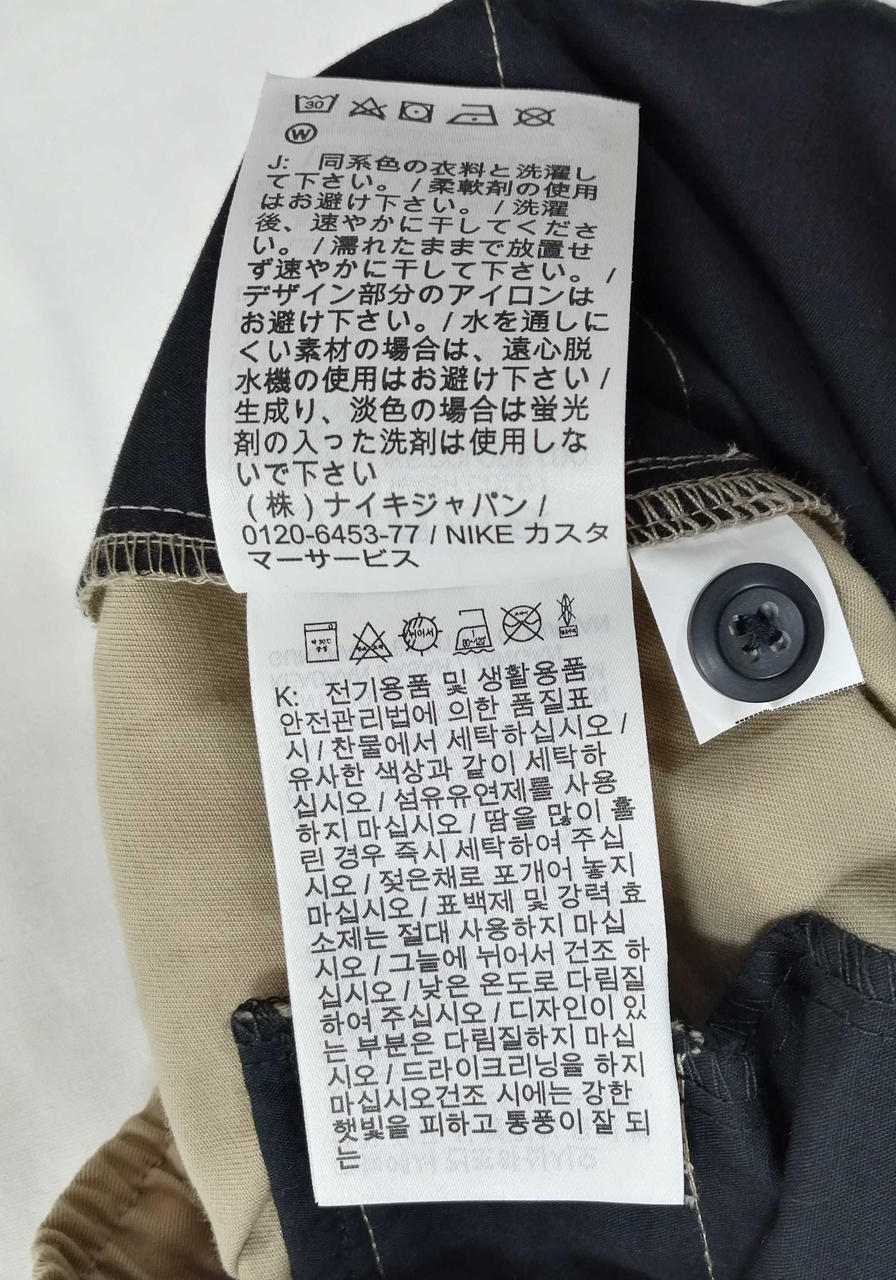 30
W
J: 同系色の衣料と洗濯し
て下さい。 / 柔軟剤の使用
はお避け下さい。 / 洗濯
後、速やかに干してくださ
い。 / 濡れたままで放置せ
ず速やかに干して下さい。 /
デザイン部分のアイロンは
お避け下さい。/ 水を通しに
くい素材の場合は、遠心脱
水機の使用はお避け下さい /
生成り、淡色の場合は蛍光
剤の入った洗剤は使用しな
いで下さい
(株) ナイキジャパン /
0120-6453-77 / NIKE カスタ
マーサービス
약 30℃
중성
뉘어서
80~120℃
K: 전기용품 및 생활용품
안전관리법에 의한 품질표
시 / 찬물에서 세탁하십시오 /
유사한 색상과 같이 세탁하
십시오 / 섬유유연제를 사용
하지 마십시오 / 땀을 많이 흘
린 경우 즉시 세탁하여 주십
시오 / 젖은채로 포개어 놓지
마십시오 / 표백제 및 강력 효
소제는 절대 사용하지 마십
시오 / 그늘에 뉘어서 건조 하
십시오 / 낮은 온도로 다림질
하여 주십시오 / 디자인이 있
는 부분은 다림질하지 마십
시오 / 드라이크리닝을 하지
마십시오건조 시에는 강한
햇빛을 피하고 통풍이 잘 되
는